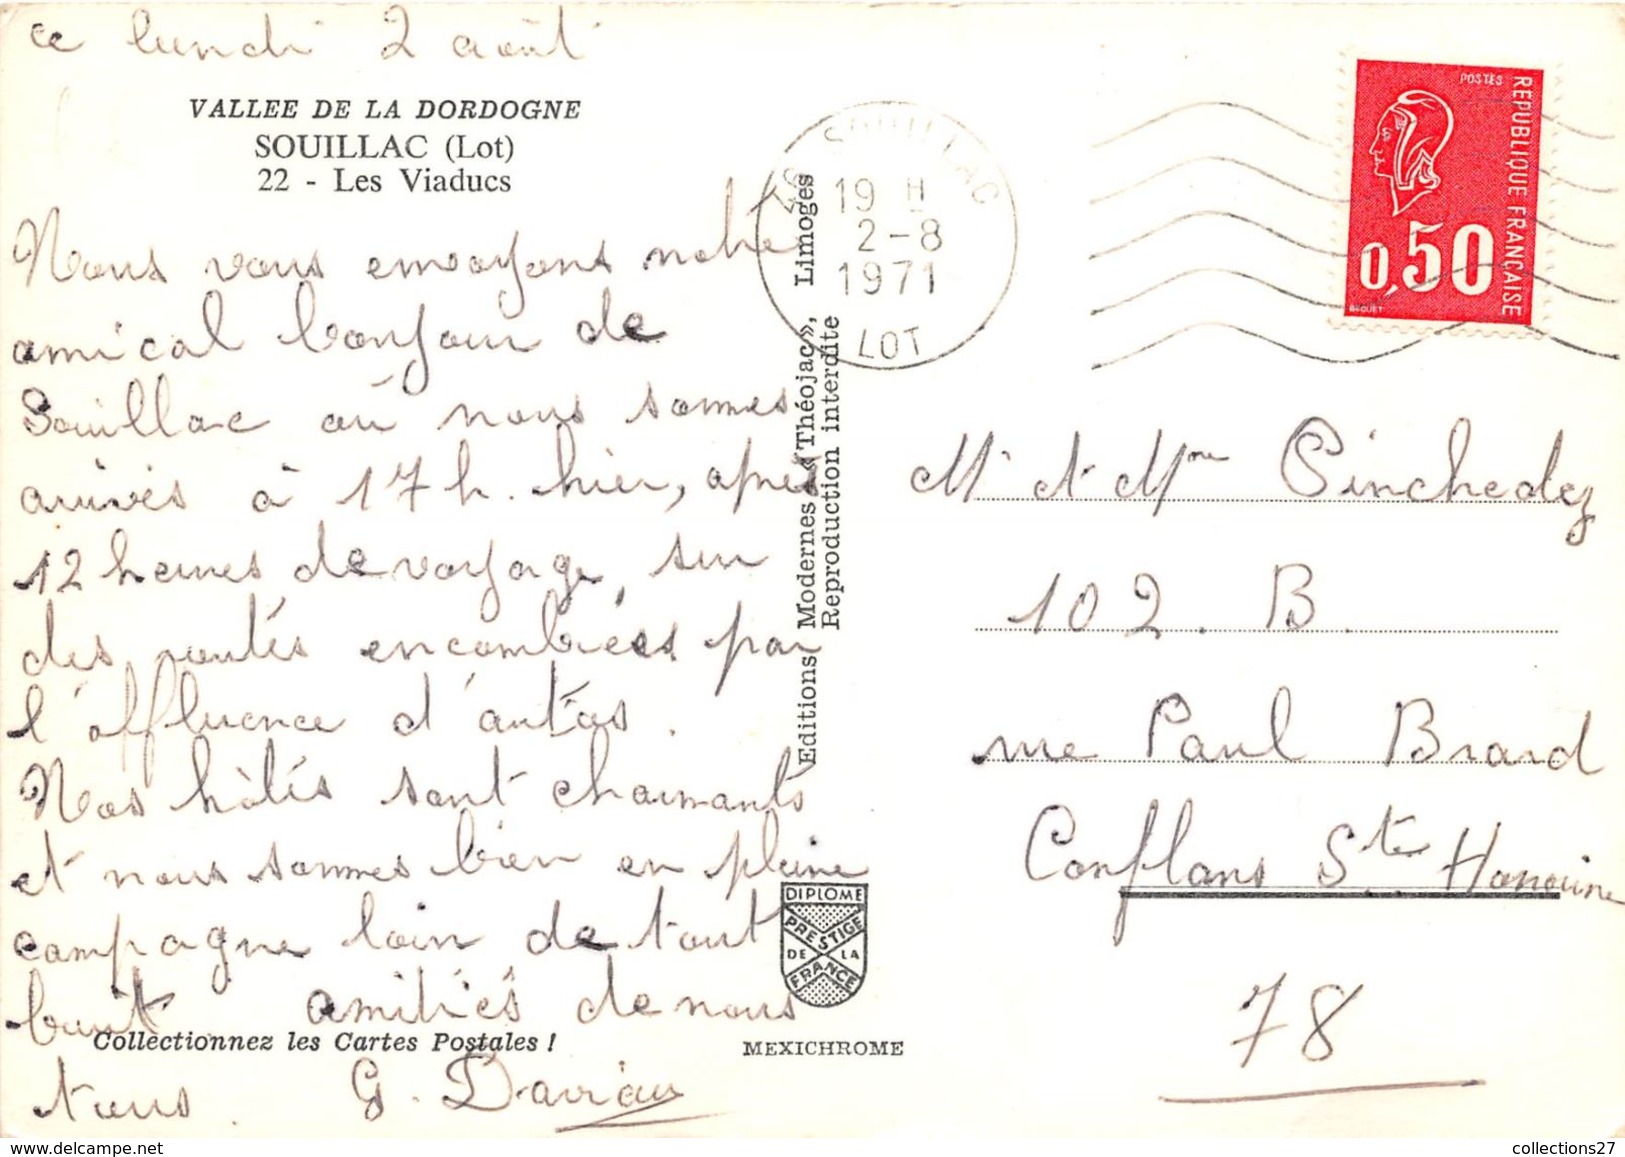 ce lundi 2 août
VALLEE DE LA DORDOGNE
SOUILLAC (Lot)
22 - Les Viaducs
Nous vous envoyons notre
amical bonjour de
Souillac où nous sommes
arrivés à 17 h. hier, après
12 heures de voyage, sur
des routes encombrées par
l'affluence d'autos.
Nos hôtes sont charmants
et nous sommes bien en pleine
campagne loin de tout
bruit amitiés de nous
tous.
Collectionnez les Cartes Postales !
Editions Modernes «Théojac», Limoges
Reproduction interdite
DIPLOME
PRESTIGE
DE LA
FRANCE
MEXICHROME
46 SOUILLAC
19 H
2-8
1971
LOT
POSTES
REPUBLIQUE FRANÇAISE
0,50
BEQUET
Mr et Mme Pinchedez
102. B.
rue Paul Brard
Conflans Ste Honorine
78
collections27